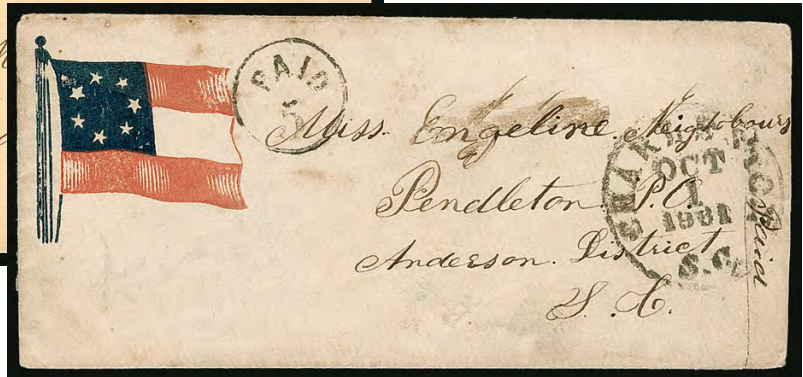 PAID
5
Miss. Engeline. Neighbours
Pendleton. P.O.
Anderson. District
S. C.
Paid
OCT
1
1861
S.C.